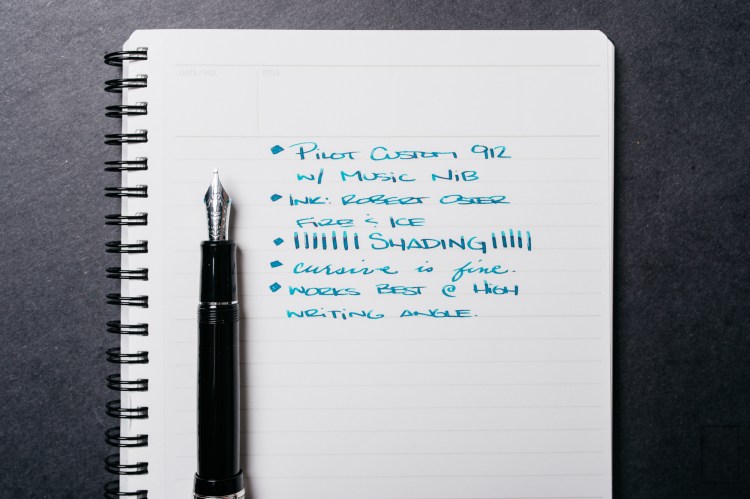 ◆ PILOT CUSTOM 912
W/ MUSIC NIB
◆ INK: ROBERT OSTER
FIRE & ICE
◆ ||||||| SHADING |||||
◆ cursive is fine.
◆ WORKS BEST @ HIGH
WRITING ANGLE.